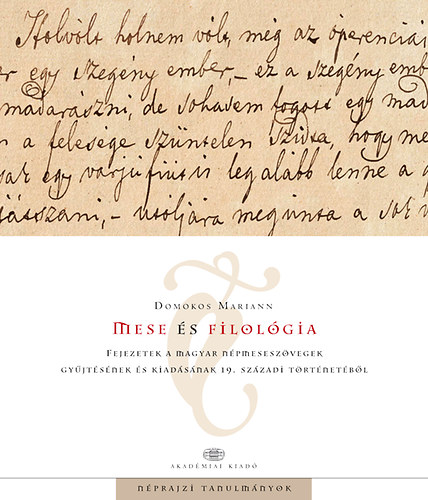 Holvólt holnem vólt, még az óperenciái
er egy szegény ember,– ez a szegény emb
madarászni, de sohasem fogott egy mad
n a felesége szüntelen szidta, hogy me
sak egy varjúfiút is legalább lenne a g
játszani,– utóljára megúnta a sok
Domokos Mariann
Mese és filológia
Fejezetek a magyar népmeseszövegek
gyűjtésének és kiadásának 19. századi történetéből
AKADÉMIAI KIADÓ
NÉPRAJZI TANULMÁNYOK